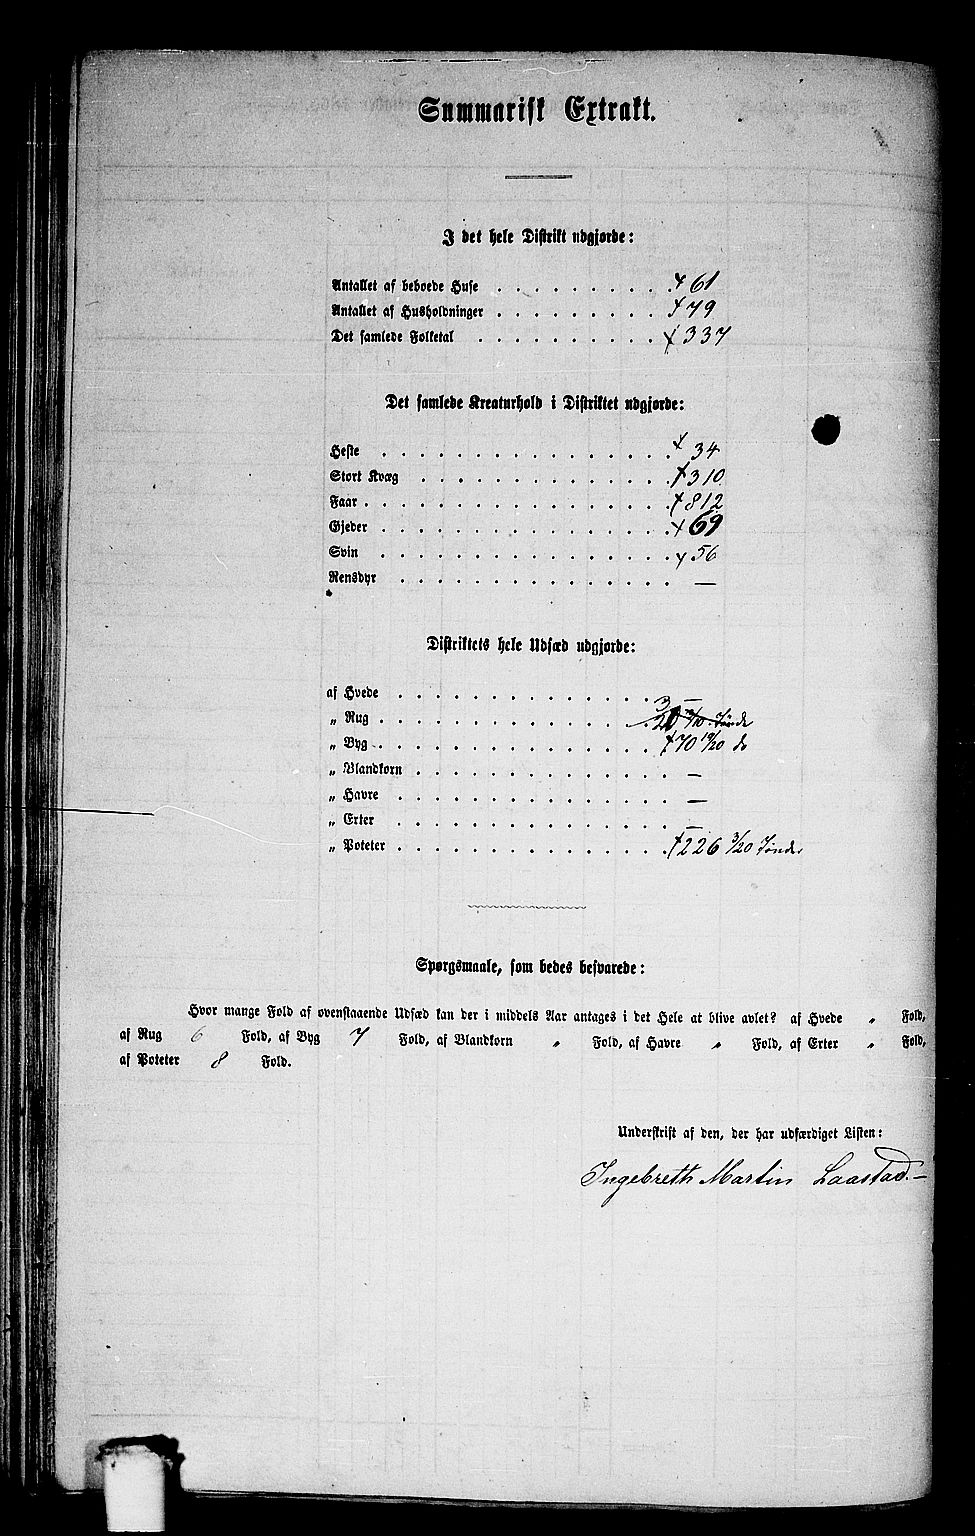 Summarisk Extrakt.
I det hele Distrikt udgjorde:
Antallet af beboede Huse . . . . . . . . . . 61
Antallet af Husholdninger . . . . . . . . . 79
Det samlede Folketal . . . . . . . . . . 337
Det samlede Kreaturhold i Distriktet udgjorde:
Heste . . . . . . . . . . . . . . . 34
Stort Kvæg . . . . . . . . . . . . . 310
Faar . . . . . . . . . . . . . . . . 812
Gjeder . . . . . . . . . . . . . . . 69
Svin . . . . . . . . . . . . . . . 56
Rensdyr . . . . . . . . . . . . . . —
Distriktets hele Udsæd udgjorde:
af Hvede . . . . . . . . . . . . . . —
„ Rug . . . . . . . . . . . . . . . Tønde
„ Byg . . . . . . . . . . . . . . . 70 19/20 do
„ Blandkorn . . . . . . . . . . . . . —
„ Havre . . . . . . . . . . . . . . —
„ Erter . . . . . . . . . . . . . . —
„ Poteter . . . . . . . . . . . . . . 226 3/20 Tønder
Spørgsmaale, som bedes besvarede:
Hvor mange Fold af ovenstaaende Udsæd kan der i middels Aar antages i det Hele at blive avlet? af Hvede „ Fold,
af Rug 6 Fold, af Byg 7 Fold, af Blandkorn „ Fold, af Havre „ Fold, af Erter „ Fold,
af Poteter 8 Fold.
Underskrift af den, der har udfærdiget Listen:
Ingebreth Martin Laastad.—